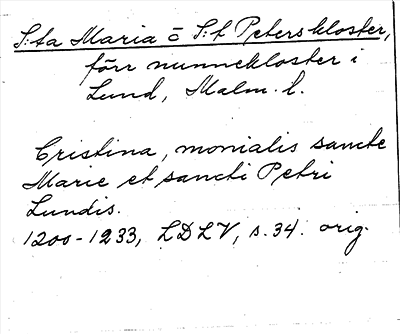 S:ta Maria o S:t Peters kloster,
förr nunnekloster i
Lund, Malm. l.
Cristina, monialis sancte
Marie et sancti Petri
Lundis.
1200-1233, LDLV, s. 34. orig.